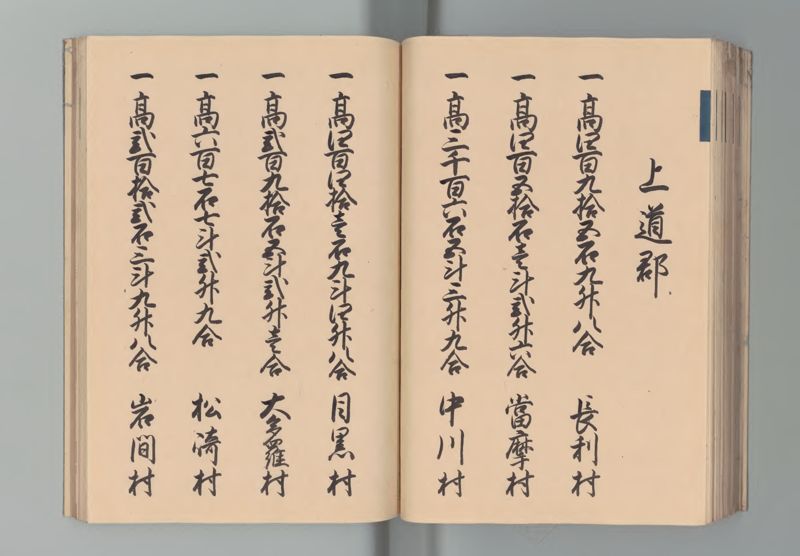 上道郡
一高四百九拾五石九升八合 長利村
一高四百五拾石壱斗弐升六合 當摩村
一高三千百六石五斗三升九合 中川村
一高四百四拾壱石九斗四升八合 目黒村
一高弐百九拾石五斗弐升壱合 大多羅村
一高六百七石七斗弐升九合 松崎村
一高弐百拾弐石三斗九升八合 岩間村